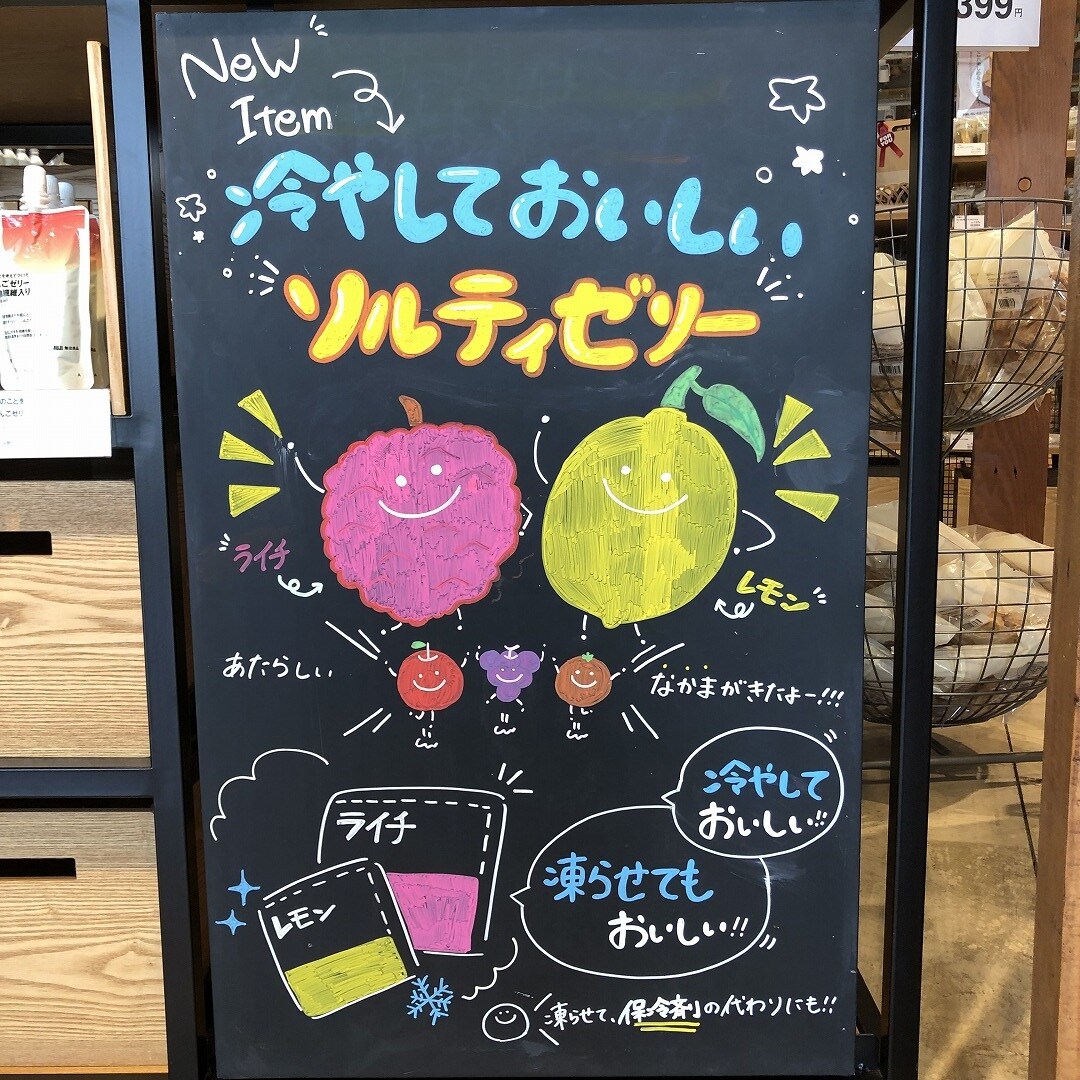 New
Item
冷やしておいしい
ソルティゼリー
ライチ
レモン
あたらしい
なかまがきたよー!!!
冷やして
おいしい!!
ライチ
凍らせても
おいしい!!
レモン
凍らせて、保冷剤の代わりにも!!
399円
FOR
YOU
ごゼリー
繊維入り
のことを
んごゼリ